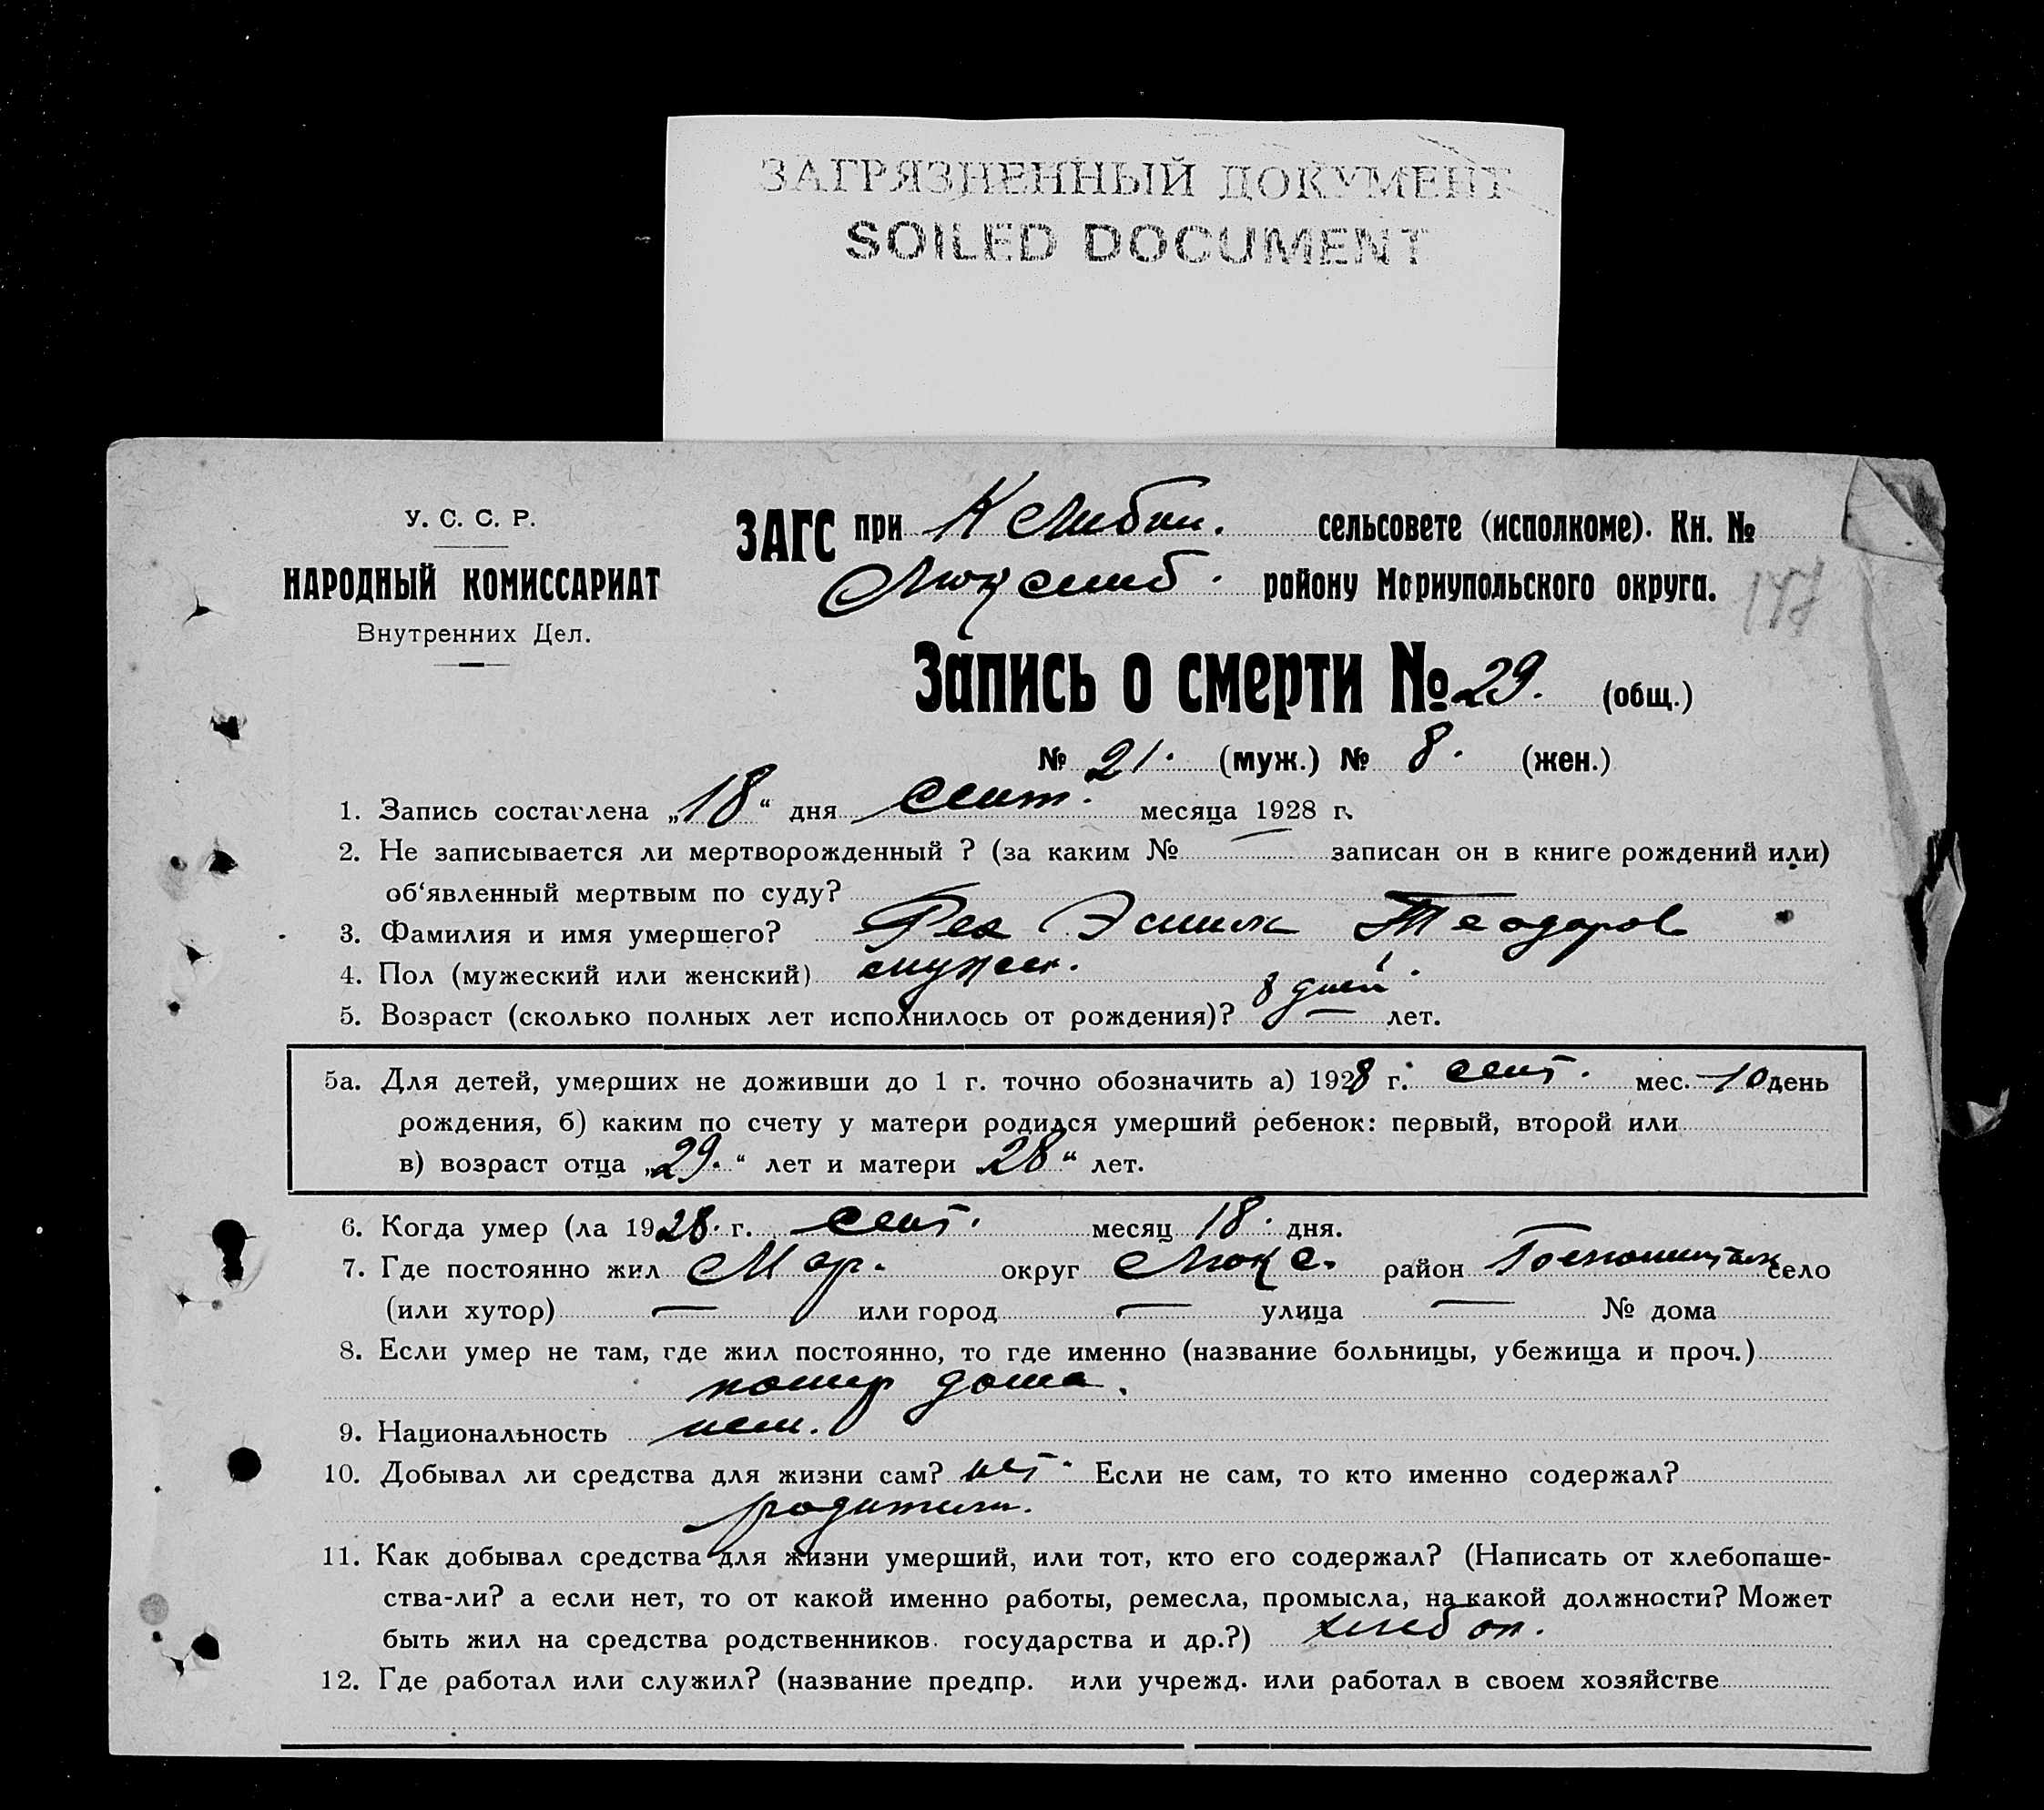 ЗАГРЯЗНЕННЫЙ ДОКУМЕНТ
SOILED DOCUMENT
У. С. С. Р.
НАРОДНЫЙ КОМИССАРИАТ
Внутренних Дел.
ЗАГС при К Либкн. сельсовете (исполкоме). Кн. №
Люксемб. району Мариупольского округа.
Запись о смерти № 29. (общ.)
№ 21. (муж.) № 8. (жен.)
1. Запись составлена „18“ дня сент. месяца 1928 г.
2. Не записывается ли мертворожденный ? (за каким № — записан он в книге рождений или)
об‘явленный мертвым по суду?
3. Фамилия и имя умершего? Фех Эмиль Теодоров
4. Пол (мужеский или женский) мужск.
5. Возраст (сколько полных лет исполнилось от рождения)? 8 дней. — лет.
5а. Для детей, умерших не доживши до 1 г. точно обозначить а) 1928 г. сент. мес. 10 день
рождения, б) каким по счету у матери родился умерший ребенок: первый, второй или
в) возраст отца „29.“ лет и матери „28“ лет.
6. Когда умер (ла 1928. г. сент. месяц 18. дня.
7. Где постоянно жил Мар. округ Люкс. район село
(или хутор) — или город — улица — № дома
8. Если умер не там, где жил постоянно, то где именно (название больницы, убежища и проч.)
помер дома.
9. Национальность нем.
10. Добывал ли средства для жизни сам? нет. Если не сам, то кто именно содержал?
родители.
11. Как добывал средства для жизни умерший, или тот, кто его содержал? (Написать от хлебопаше-
ства-ли? а если нет, то от какой именно работы, ремесла, промысла, на какой должности? Может
быть жил на средства родственников. государства и др.?) хлебоп.
12. Где работал или служил? (название предпр. или учрежд. или работал в своем хозяйстве